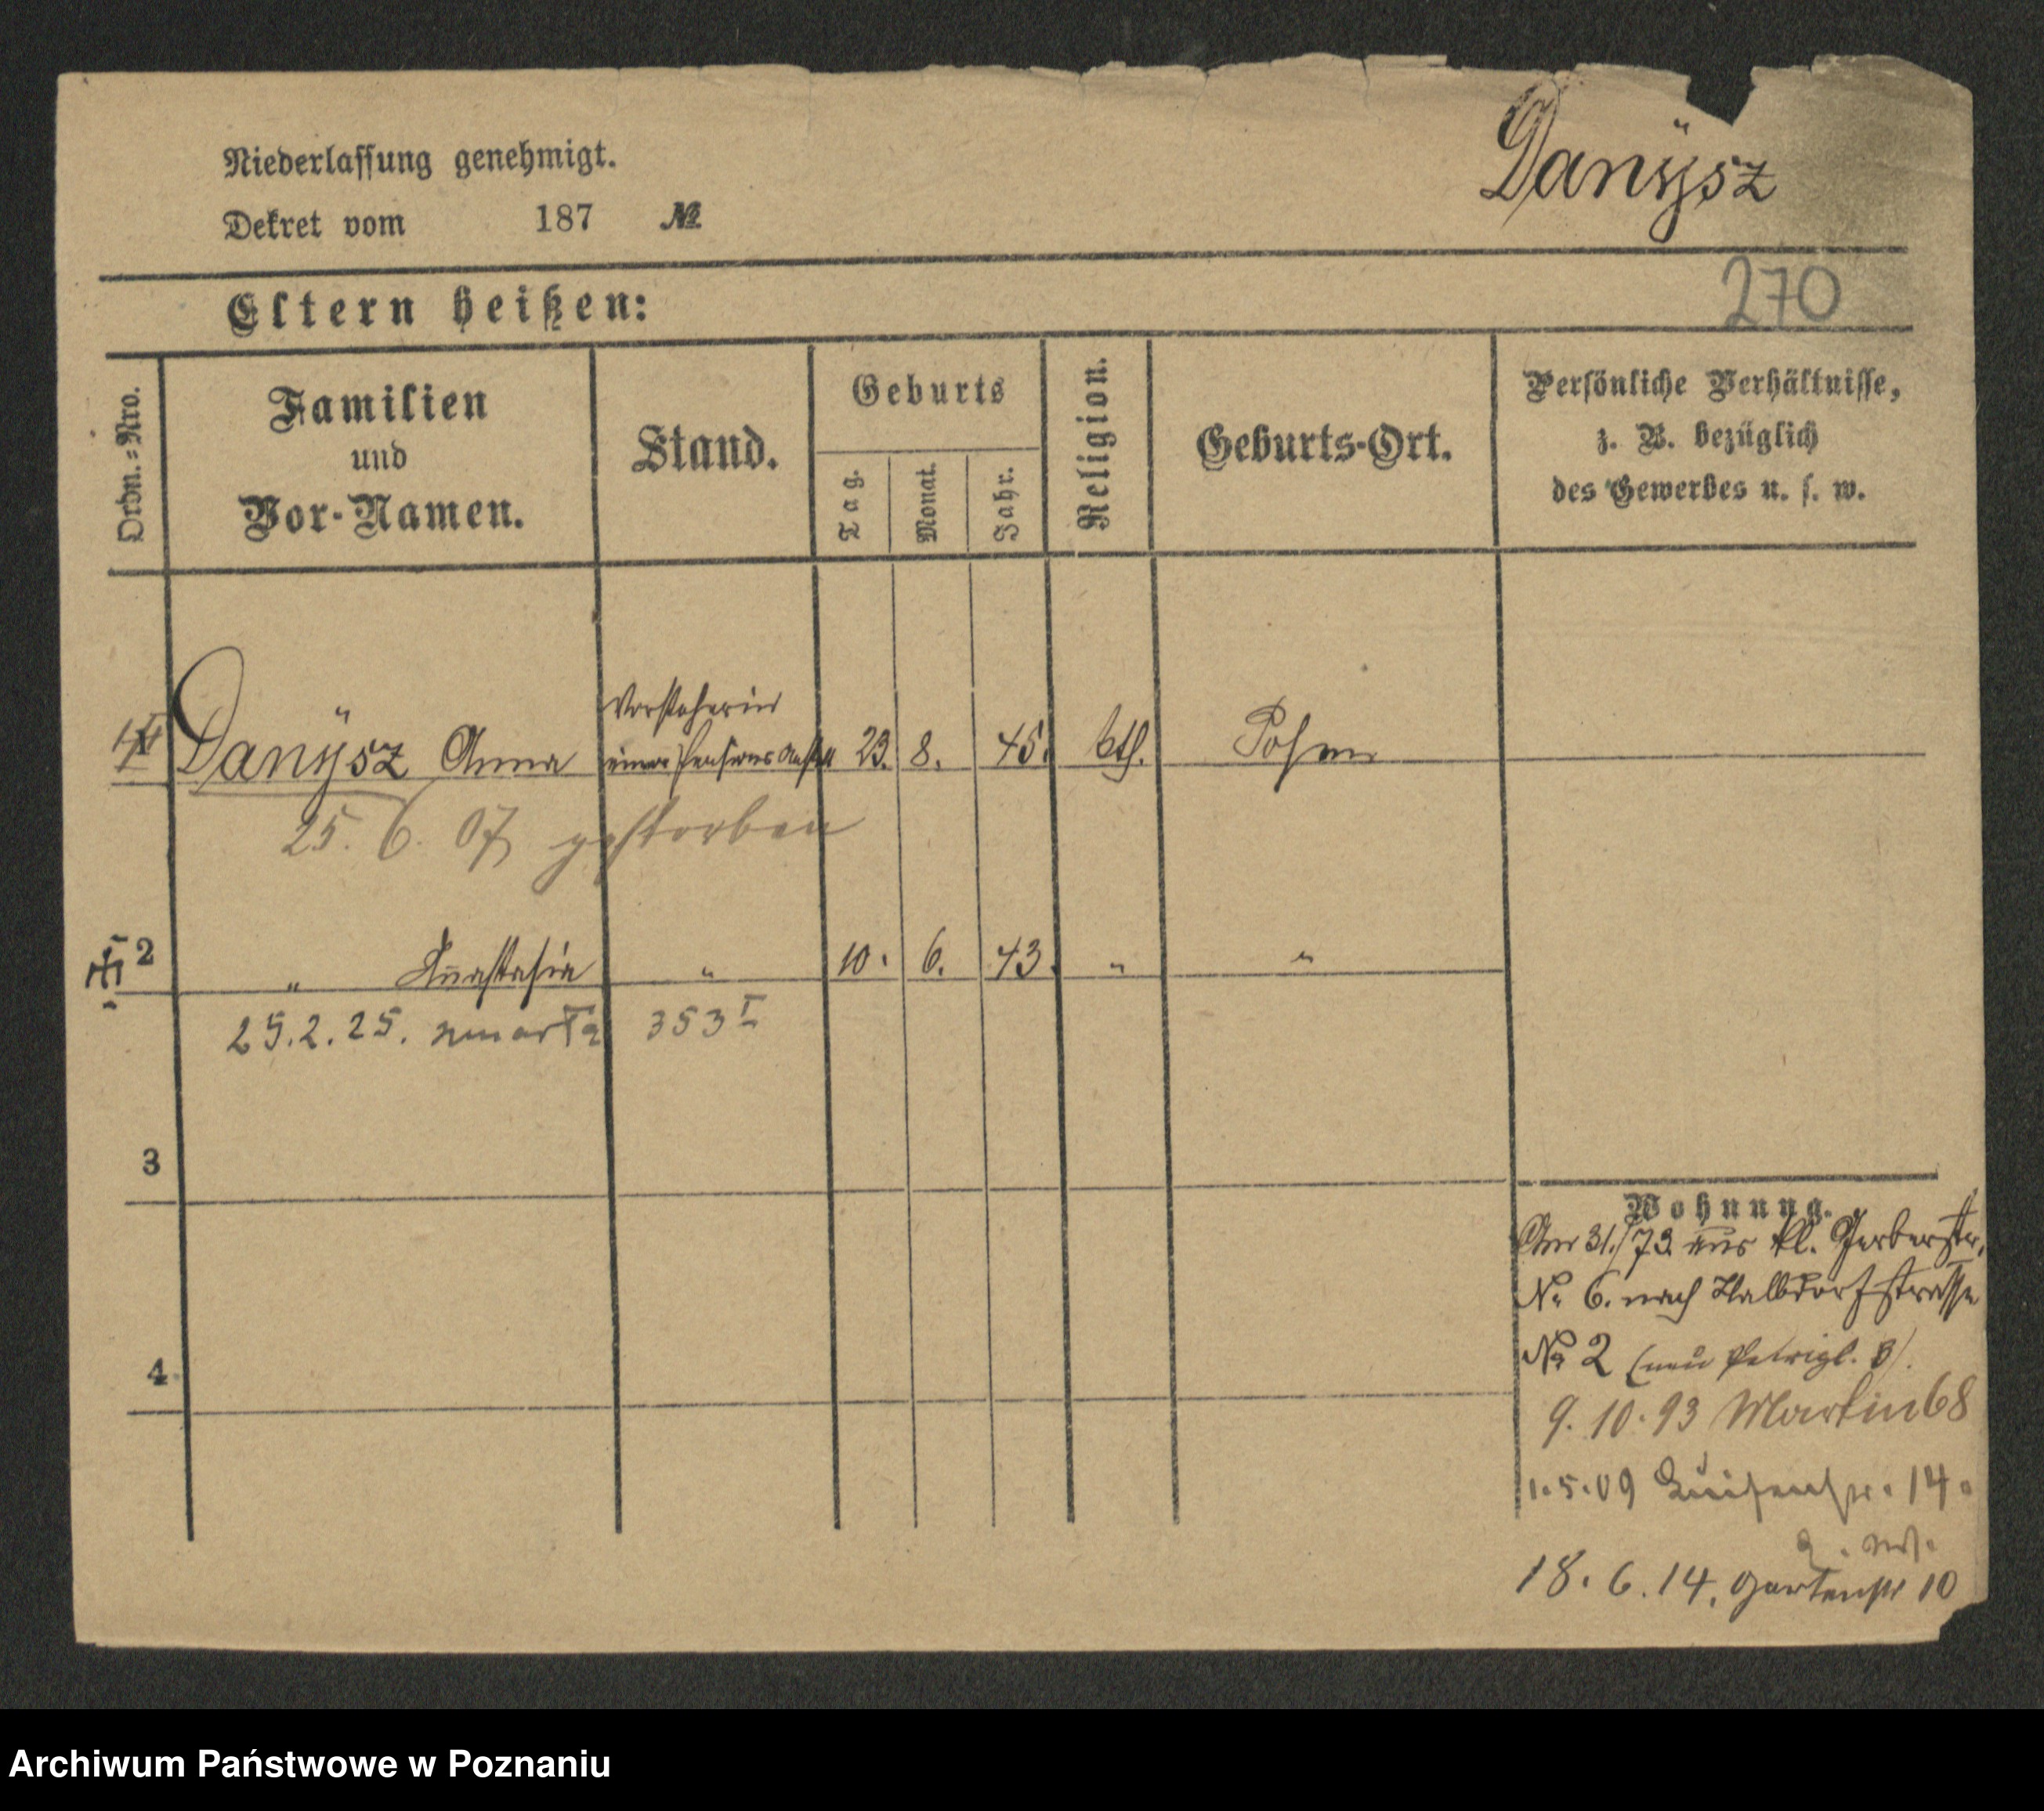 Niederlassung genehmigt.
Danÿsz
Dekret vom 187 №
270
Eltern heißen:
Ordn.=Nro.
Familien
und
Vor-Namen.
Stand.
Geburts
Tag.
Monat.
Jahr.
Religion.
Geburts-Ort.
Persönliche Verhältnisse,
z. B. bezüglich
des Gewerbes u. s. w.
Vorsteherin
1 Danÿsz Anna einer Pensions Anstalt 23. 8. 45. kth. Posen
25. 6. 07 gestorben
2 " Anastasia " 10. 6. 43. " "
25.2.25. zmarła 353 I
3
4
Wohnung.
Am 31./73. aus kl. Gerberstr.
No 6. nach Halbdorfstrasse
No 2 (neu Petripl. 3).
9. 10. 93 Martin 68
1.5.09 Luisenstr. 14.
18. 6. 14. Gartenstr 10
Archiwum Państwowe w Poznaniu